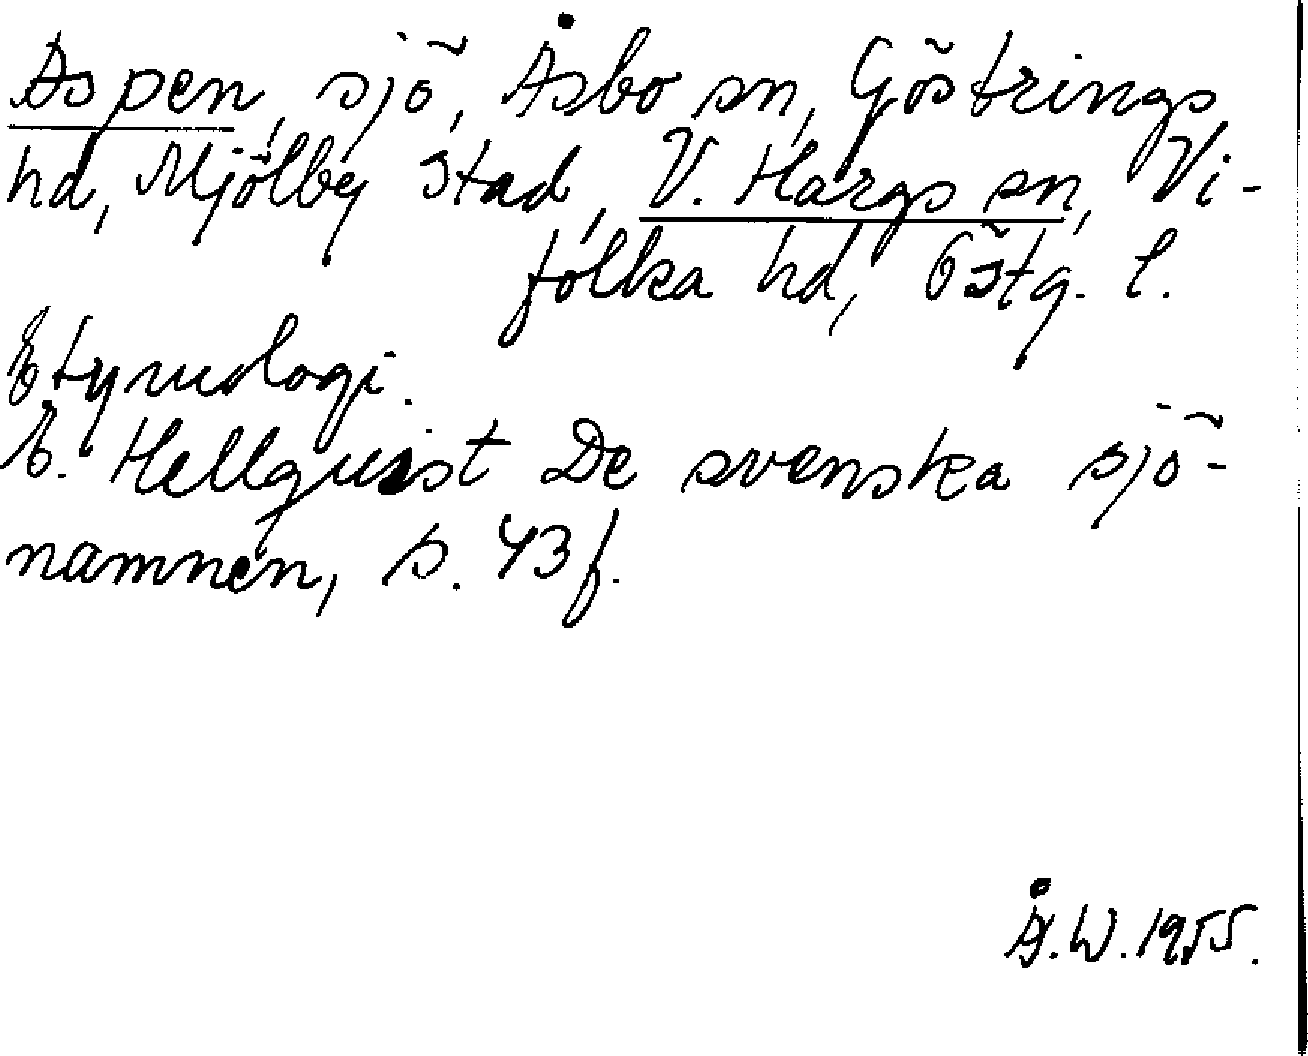 Aspen, sjö, Åsbo sn, Göstrings
hd, Mjölby stad, V. Hargs sn, Vi-
folka hd, Östg. l.
Etymologi.
E. Hellquist De svenska sjö-
namnen, s. 43 f.
Å.W. 1955.